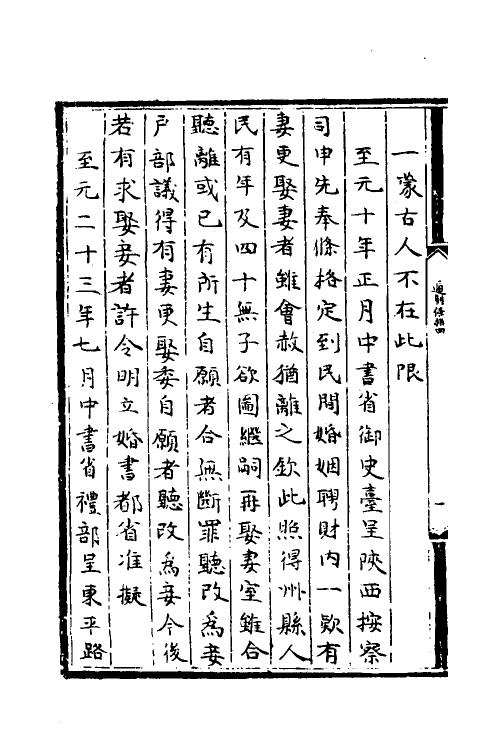 一蒙古人不在此限
至元十年正月中書省御史臺呈陝西按察
司申先奉條格定到民間婚姻聘財内一欵有
妻更娶妻者雖會赦猶離之欽此照得州縣人
民有年及四十無子欲圖繼嗣再娶妻室雖合
聽離或已有所生自願者合無斷罪聽改爲妾
戶部議得有妻更娶委自願者聽改爲妾今後
若有求娶妾者許令明立婚書都省准擬
至元二十三年七月中書省禮部呈東平路
通制條格四
一